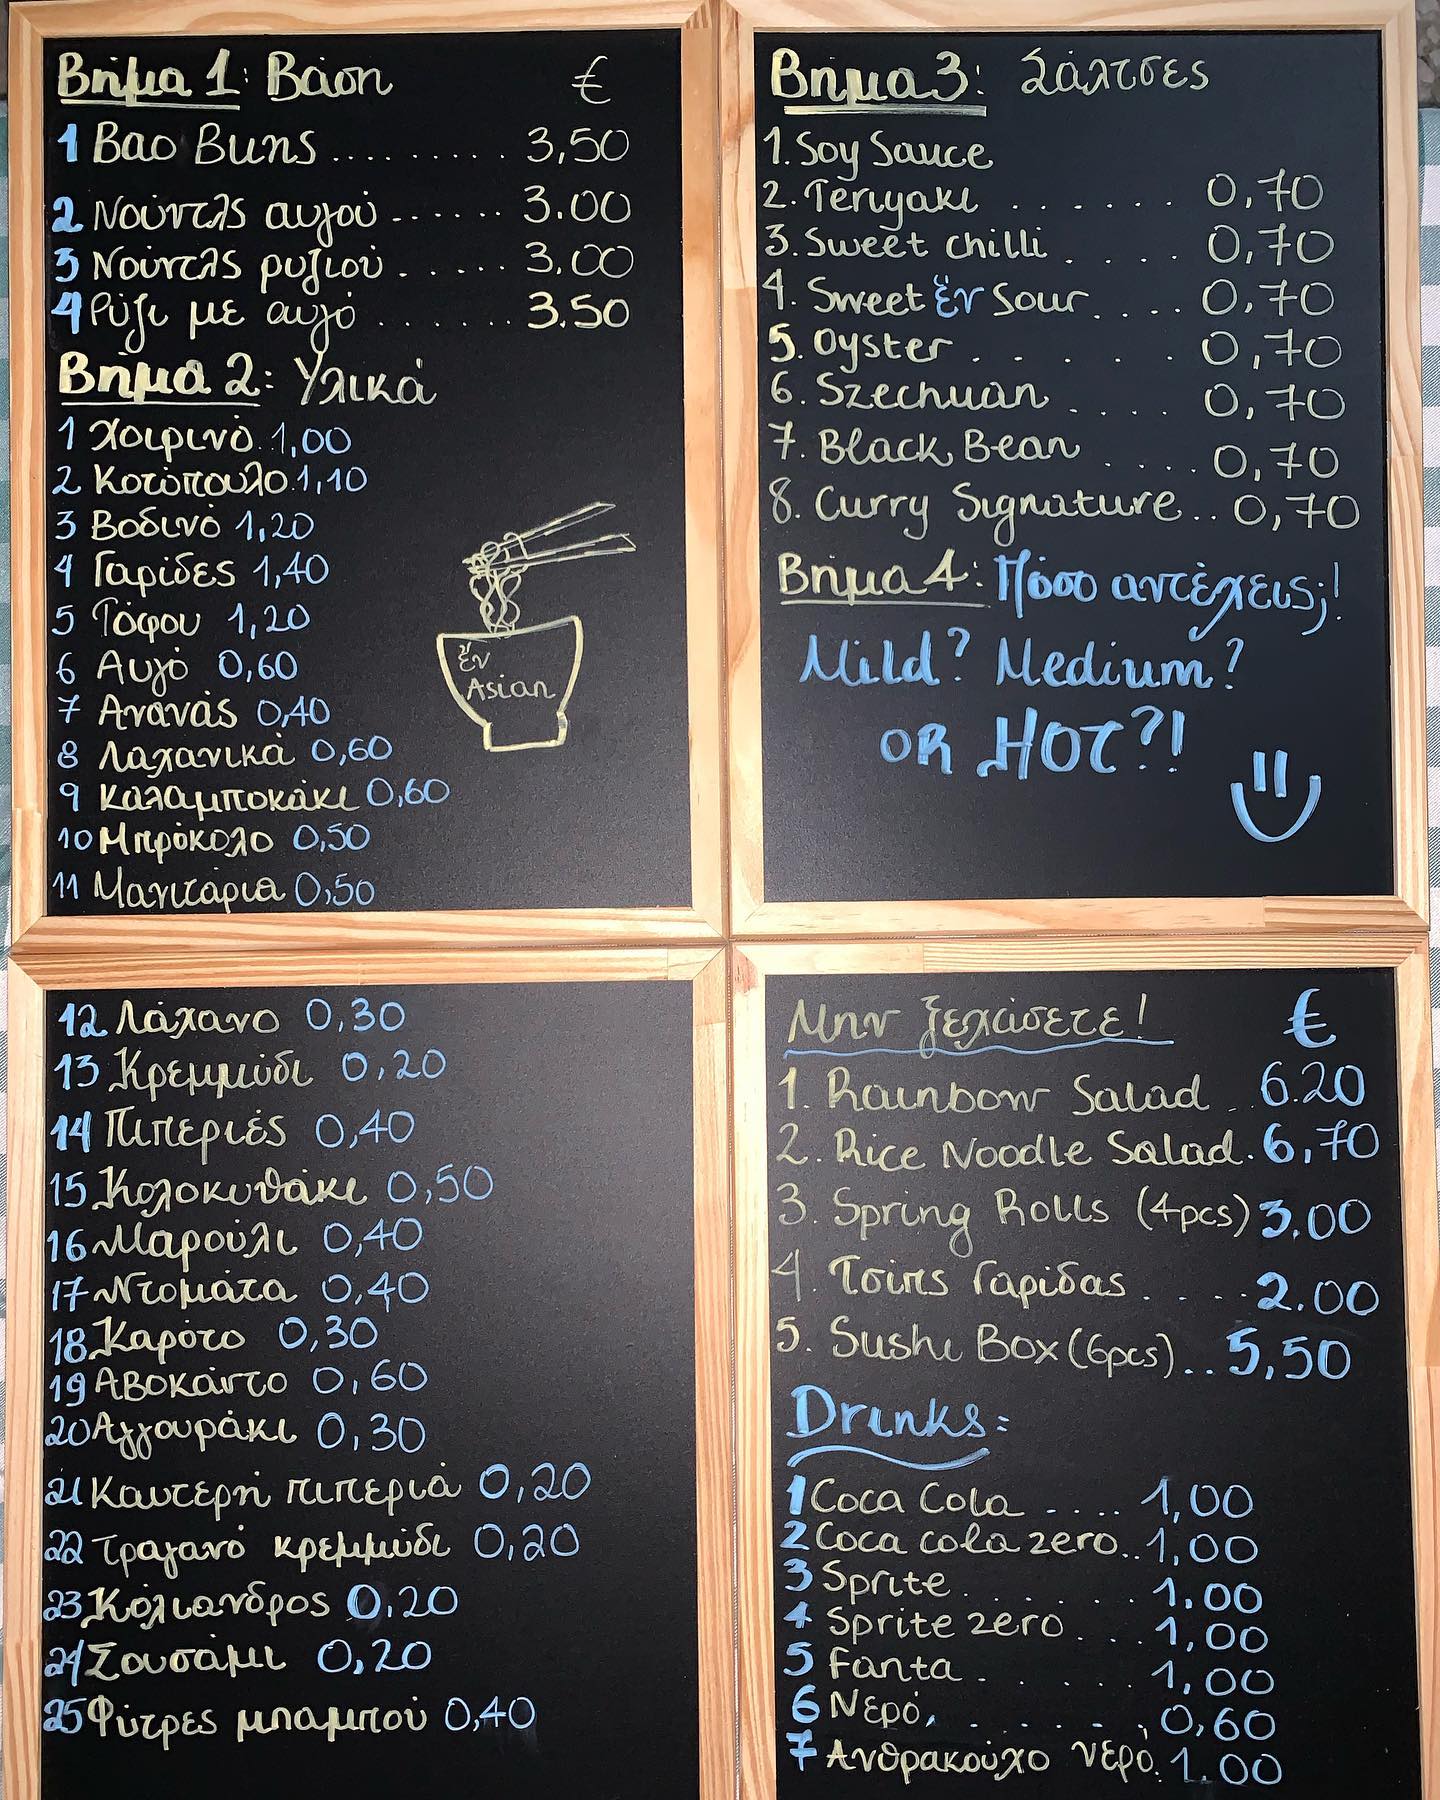 Βήμα 1: Βάση €
1 Bao Buns.......... 3,50
2 Νούντλς αυγού....... 3.00
3 Νούντλς ρυζιού....... 3,00
4 Ρύζι με αυγό ....... 3.50
Βήμα 2: Υλικά
1 Χοιρινό 1,00
2 Κοτόπουλο 1,10
3 Βοδινό 1,20
4 Γαρίδες 1,40
5 Τόφου 1,20
6 Αυγό 0,60
7 Ανανάς 0,40
8 Λαχανικά 0,60
9 Καλαμποκάκι 0,60
10 Μπρόκολο 0,50
11 Μανιτάρια 0,50
ἕν
Asian
Βήμα 3: Σάλτσες
1. Soy Sauce
2. Teriyaki ...... 0,70
3. Sweet chilli .... 0,70
4. Sweet ἕν Sour .... 0,70
5. Oyster ..... 0,70
6. Szechuan .... 0,70
7. Black Bean .... 0,70
8. Curry Signature.. 0,70
Βήμα 4: Πόσο αντέχεις;!
Mild? Medium?
OR HOT?!
12 Λάχανο 0,30
13 Κρεμμύδι 0,20
14 Πιπεριές 0,40
15 Κολοκυθάκι 0,50
16 Μαρούλι 0,40
17 Ντομάτα 0,40
18 Καρότο 0,30
19 Αβοκάντο 0,60
20 Αγγουράκι 0,30
21 Καυτερή πιπεριά 0,20
22 Τραγανό κρεμμύδι 0,20
23 Κόλιανδρος 0,20
24 Σουσάμι 0,20
25 Φύτρες μπαμπού 0,40
Μην ξεχάσετε! €
1. Rainbow Salad .. 6.20
2. Rice Noodle Salad. 6,70
3. Spring Rolls (4pcs) 3,00
4. Τσίπς Γαρίδας ..... 2.00
5. Sushi Box (6pcs).. 5,50
Drinks:
1 Coca Cola .... 1,00
2 Coca cola zero.. 1,00
3 Sprite ...... 1.00
4 Sprite zero ... 1,00
5 Fanta ...... 1,00
6 Νερό ...... 0,60
7 Ανθρακούχο νερό. 1.00